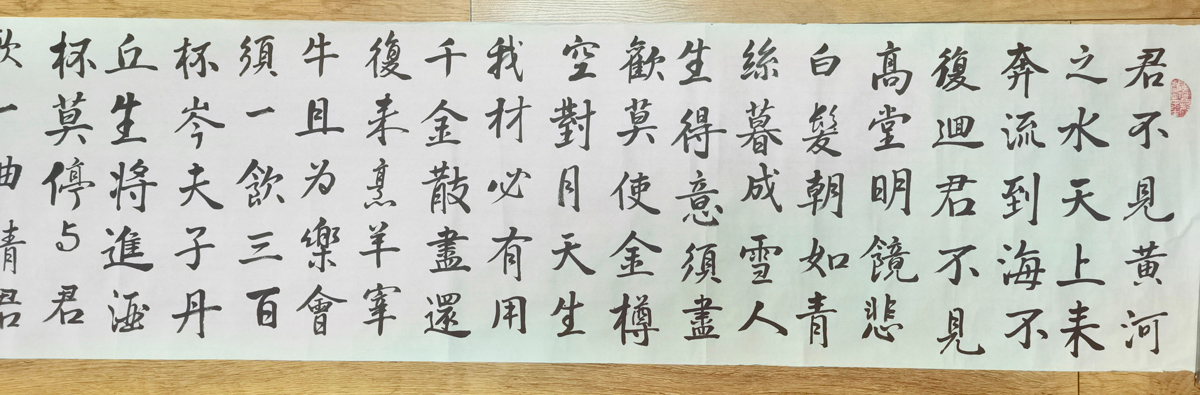 君不見黄河
之水天上来
奔流到海不
復迴君不見
高堂明鏡悲
白髮朝如青
絲暮成雪人
生得意須盡
歡莫使金樽
空對月天生
我材必有用
千金散盡還
復来烹羊宰
牛且为樂會
須一飲三百
杯岑夫子丹
丘生将進酒
杯莫停与君
歌一曲請君